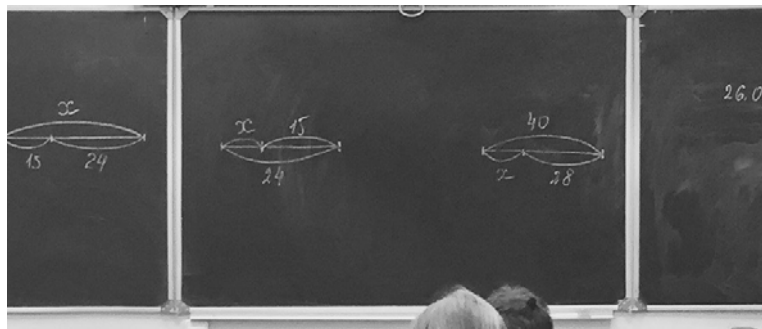 x
15 24
x 15
24
40
x 28
26.0